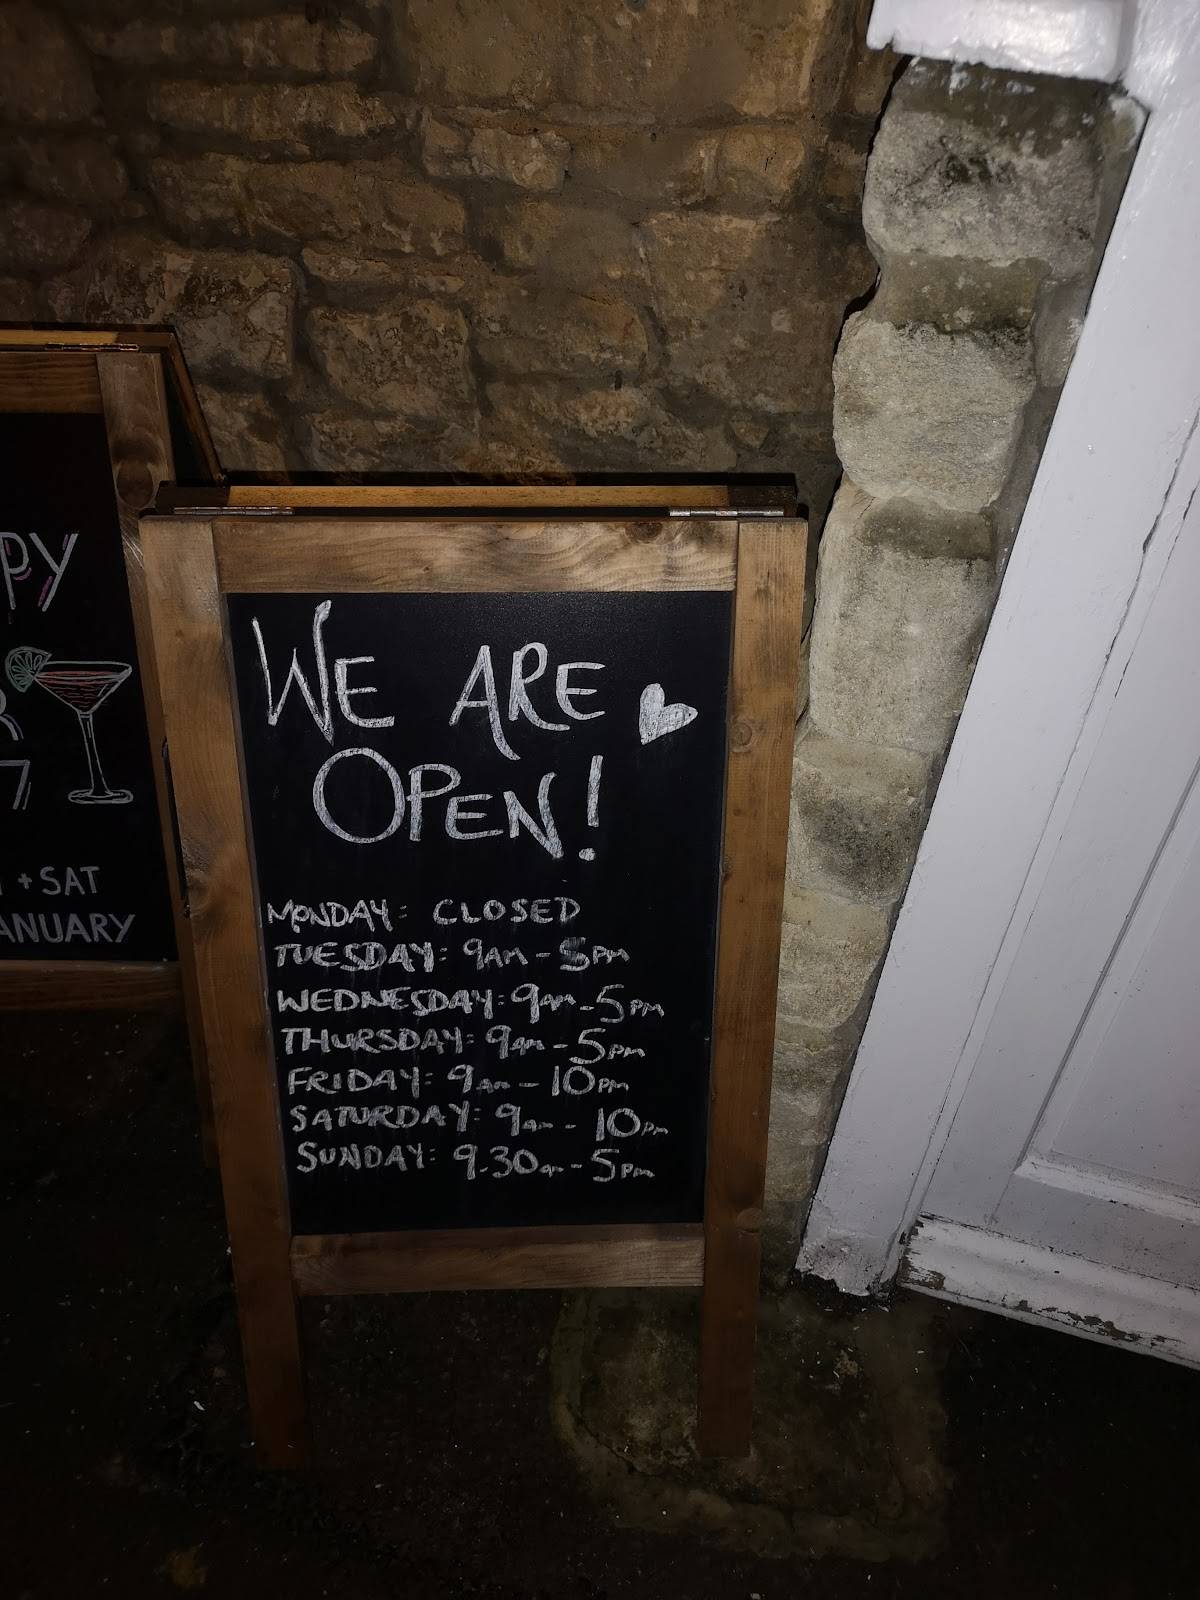 WE ARE
OPEN!
MONDAY: CLOSED
TUESDAY: 9AM - 5PM
WEDNESDAY: 9AM - 5PM
THURSDAY: 9AM - 5PM
FRIDAY: 9AM - 10PM
SATURDAY: 9AM - 10PM
SUNDAY: 9.30AM - 5PM
PY
R
7
+ SAT
ANUARY